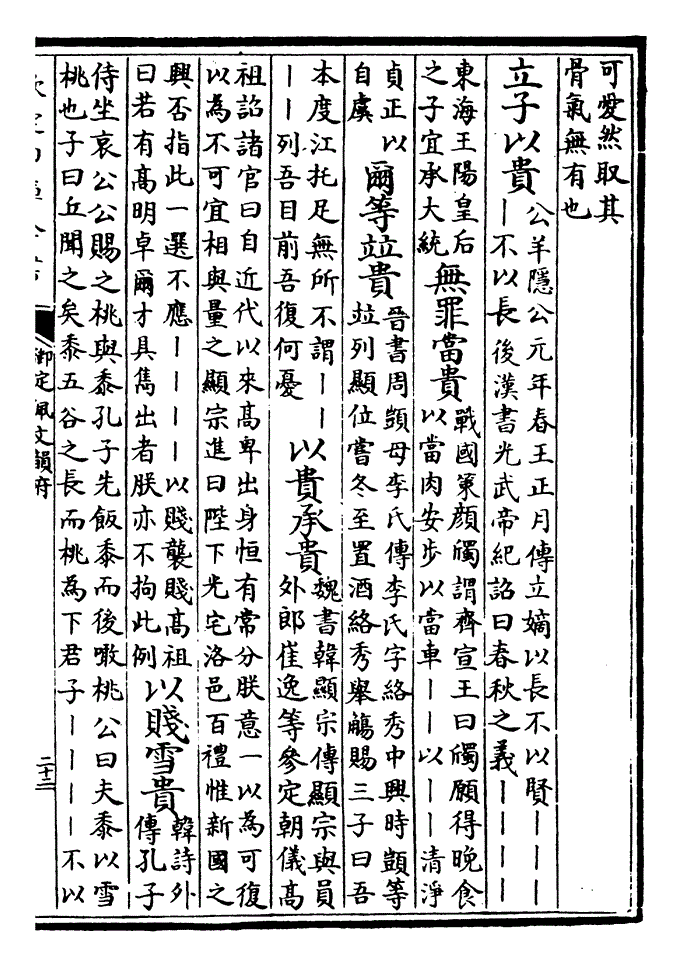 可愛然取其
骨氣無有也
立子以貴
公羊隱公元年春王正月傳立嫡以長不以賢丨丨丨
丨不以長後漢書光武帝紀詔曰春秋之義丨丨丨丨
東海王陽皇后
之子宜承大統
無罪當貴
戰國策顔斶謂齊宣王曰斶願得晚食
以當肉安步以當車丨丨以丨丨清淨
貞正以
自虞
爾等竝貴
晉書周顗母李氏傳李氏字絡秀中興時顗等
竝列顯位嘗冬至置酒絡秀舉觴賜三子曰吾
本度江托足無所不謂丨丨
丨丨列吾目前吾復何憂
以貴承貴
魏書韓顯宗傳顯宗與員
外郎崔逸等參定朝儀高
祖詔諸官曰自近代以來高卑出身恒有常分朕意一以為可復
以為不可宜相與量之顯宗進曰陛下光宅洛邑百禮惟新國之
興否指此一選不應丨丨丨丨以賤襲賤高祖
曰若有高明卓爾才具雋出者朕亦不拘此例
以賤雪貴
韓詩外
傳孔子
侍坐哀公公賜之桃與黍孔子先飯黍而後噉桃公曰夫黍以雪
桃也子曰丘聞之矣黍五谷之長而桃為下君子丨丨丨丨不以
欽定四庫全書
御定佩文韻府
二十二